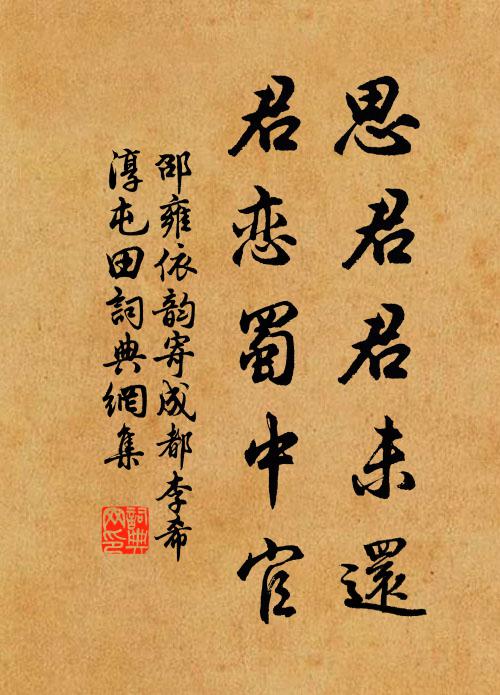 思君君未還
君恋蜀中官
邵雍依韵寄成都李希
淳屯田詞典網集